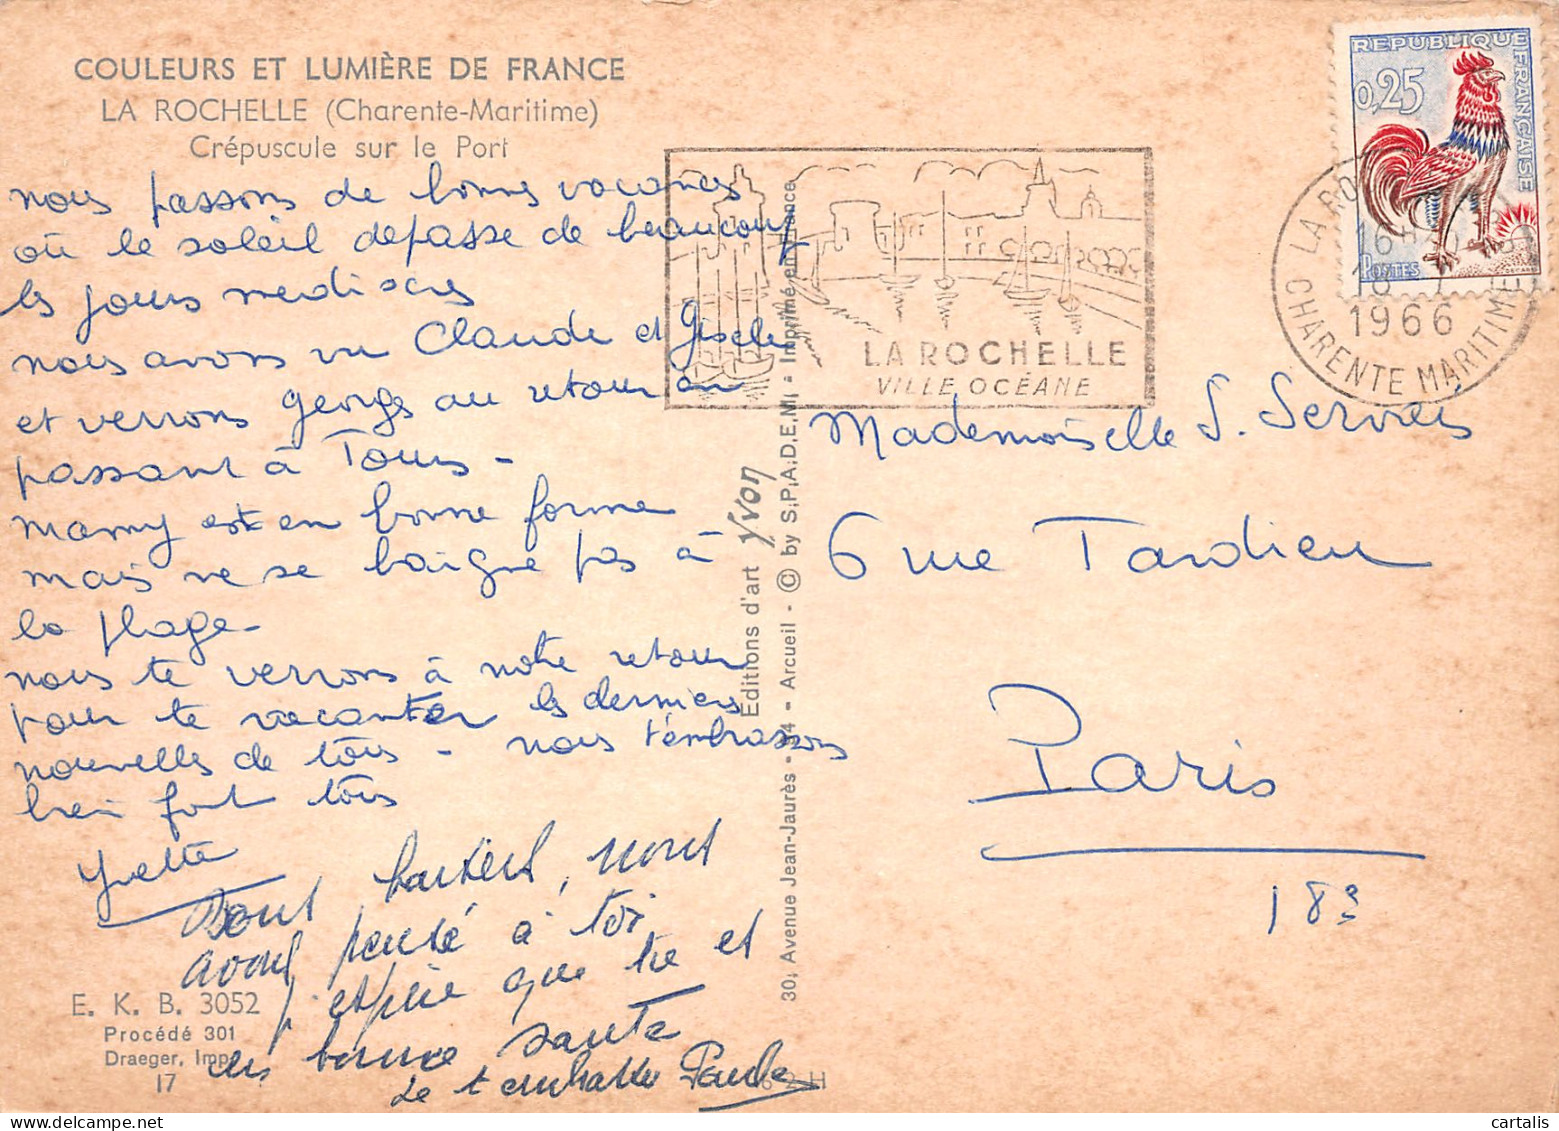 COULEURS ET LUMIÈRE DE FRANCE
LA ROCHELLE (Charente-Maritime)
Crépuscule sur le Port
nous passons de bonnes vacances
où le soleil depasse de beaucoup
les jours mediocres
nous avons vu Claude et Gisèle
et verrons Georges au retour en
passant à Tours -
Mamy est en bonne forme
mais ne se baigne pas à
la plage -
nous te verrons à notre retour
pour te racanter les derniers
nouvelles de tous - nous t'embrassons
bien fort tous
Yvette
avons pensé à toi
j'espère que tu et
en bonne santé
Je t'embrasse Paule
E. K. B. 3052
Procédé 301
Draeger, Imp.
17
Editions d'art Yvon
30, Avenue Jean-Jaurès - 94 - Arcueil - © by S.P.A.D.E.M. - Imprimé en France
6 2 H
LA ROCHELLE
VILLE OCÉANE
REPUBLIQUE FRANÇAISE
0,25
POSTES
LA RO
16H
1966
CHARENTE MARITIME
Mademoiselle S. Servais
6 rue Tardieu
Paris
183
cartalis